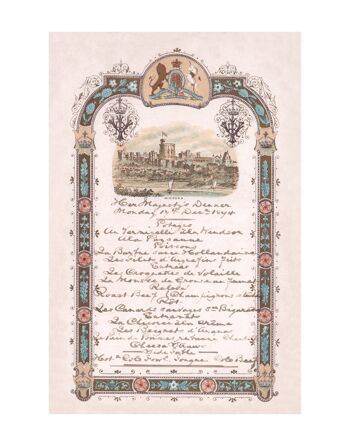 WINDSOR
Her Majesty's Dinner
Monday 17th Decr 1894
Potages
Au Vermicelle à la Windsor
A la Paysanne
Poissons
La Barbue sauce Hollandaise
Les filets d'Aigrefin frits
Entrées
Les Croquettes de Volaille
La Mousse de
Relevé
Roast Beef Champignons
Rôt
Les Canards sauvages Sce Bigarade
Entremets
La Chicorée à la Crème
Les Beignets d'Ananas
Le Pain de
Side Table
Hot & Cold Fowl. Tongue Cold Beef